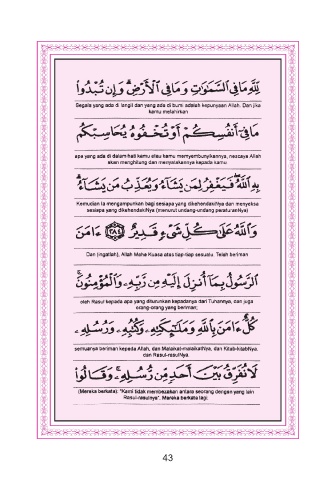 لِّلَّهِ مَا فِي السَّمَٰوَٰتِ وَمَا فِي الْأَرْضِ ۗ وَإِن تُبْدُوا
Segala yang ada di langit dan yang ada di bumi adalah kepunyaan Allah. Dan jika
kamu melahirkan
مَا فِي أَنفُسِكُمْ أَوْ تُخْفُوهُ يُحَاسِبْكُم
apa yang ada di dalam hati kamu atau kamu menyembunyikannya, nescaya Allah
akan menghitung dan menyatakannya kepada kamu
بِهِ اللَّهُ ۖ فَيَغْفِرُ لِمَن يَشَاءُ وَيُعَذِّبُ مَن يَشَاءُ ۗ
Kemudian Ia mengampunkan bagi sesiapa yang dikehendakiNya dan menyeksa
sesiapa yang dikehendakiNya (menurut undang-undang peraturanNya)
وَاللَّهُ عَلَىٰ كُلِّ شَيْءٍ قَدِيرٌ ٢٨٤ ءَامَنَ
Dan (ingatlah), Allah Maha Kuasa atas tiap-tiap sesuatu. Telah beriman
الرَّسُولُ بِمَا أُنزِلَ إِلَيْهِ مِن رَّبِّهِ وَالْمُؤْمِنُونَ ۚ
oleh Rasul kepada apa yang diturunkan kepadanya dari Tuhannya, dan juga
orang-orang yang beriman;
كُلٌّ ءَامَنَ بِاللَّهِ وَمَلَٰئِكَتِهِ وَكُتُبِهِ وَرُسُلِهِ
semuanya beriman kepada Allah, dan Malaikat-malaikatNya, dan Kitab-kitabNya,
dan Rasul-rasulNya.
لَا نُفَرِّقُ بَيْنَ أَحَدٍ مِّن رُّسُلِهِ ۚ وَقَالُوا
(Mereka berkata): "Kami tidak membezakan antara seorang dengan yang lain
Rasul-rasulnya". Mereka berkata lagi:
43